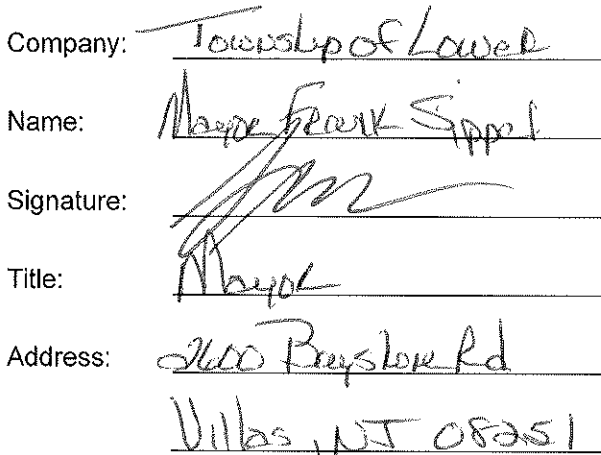 Company: Township of Lower
Name: Mayor Frank Sippel
Signature:
Title: Mayor
Address: 2600 Bayshore Rd
Villas, NJ 08251